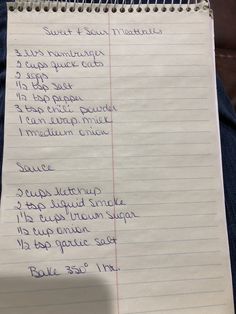 Sweet & Sour Meatballs
3 lbs hamburger
2 cups quick oats
2 eggs
1/2 tsp salt
1/2 tsp pepper
3 tsp chili powder
1 can evap. milk
1 medium onion
Sauce
2 cups ketchup
2 tsp liquid smoke
1 1/2 cups brown sugar
1/2 cup onion
1/2 tsp garlic salt
Bake 350° 1 hr.